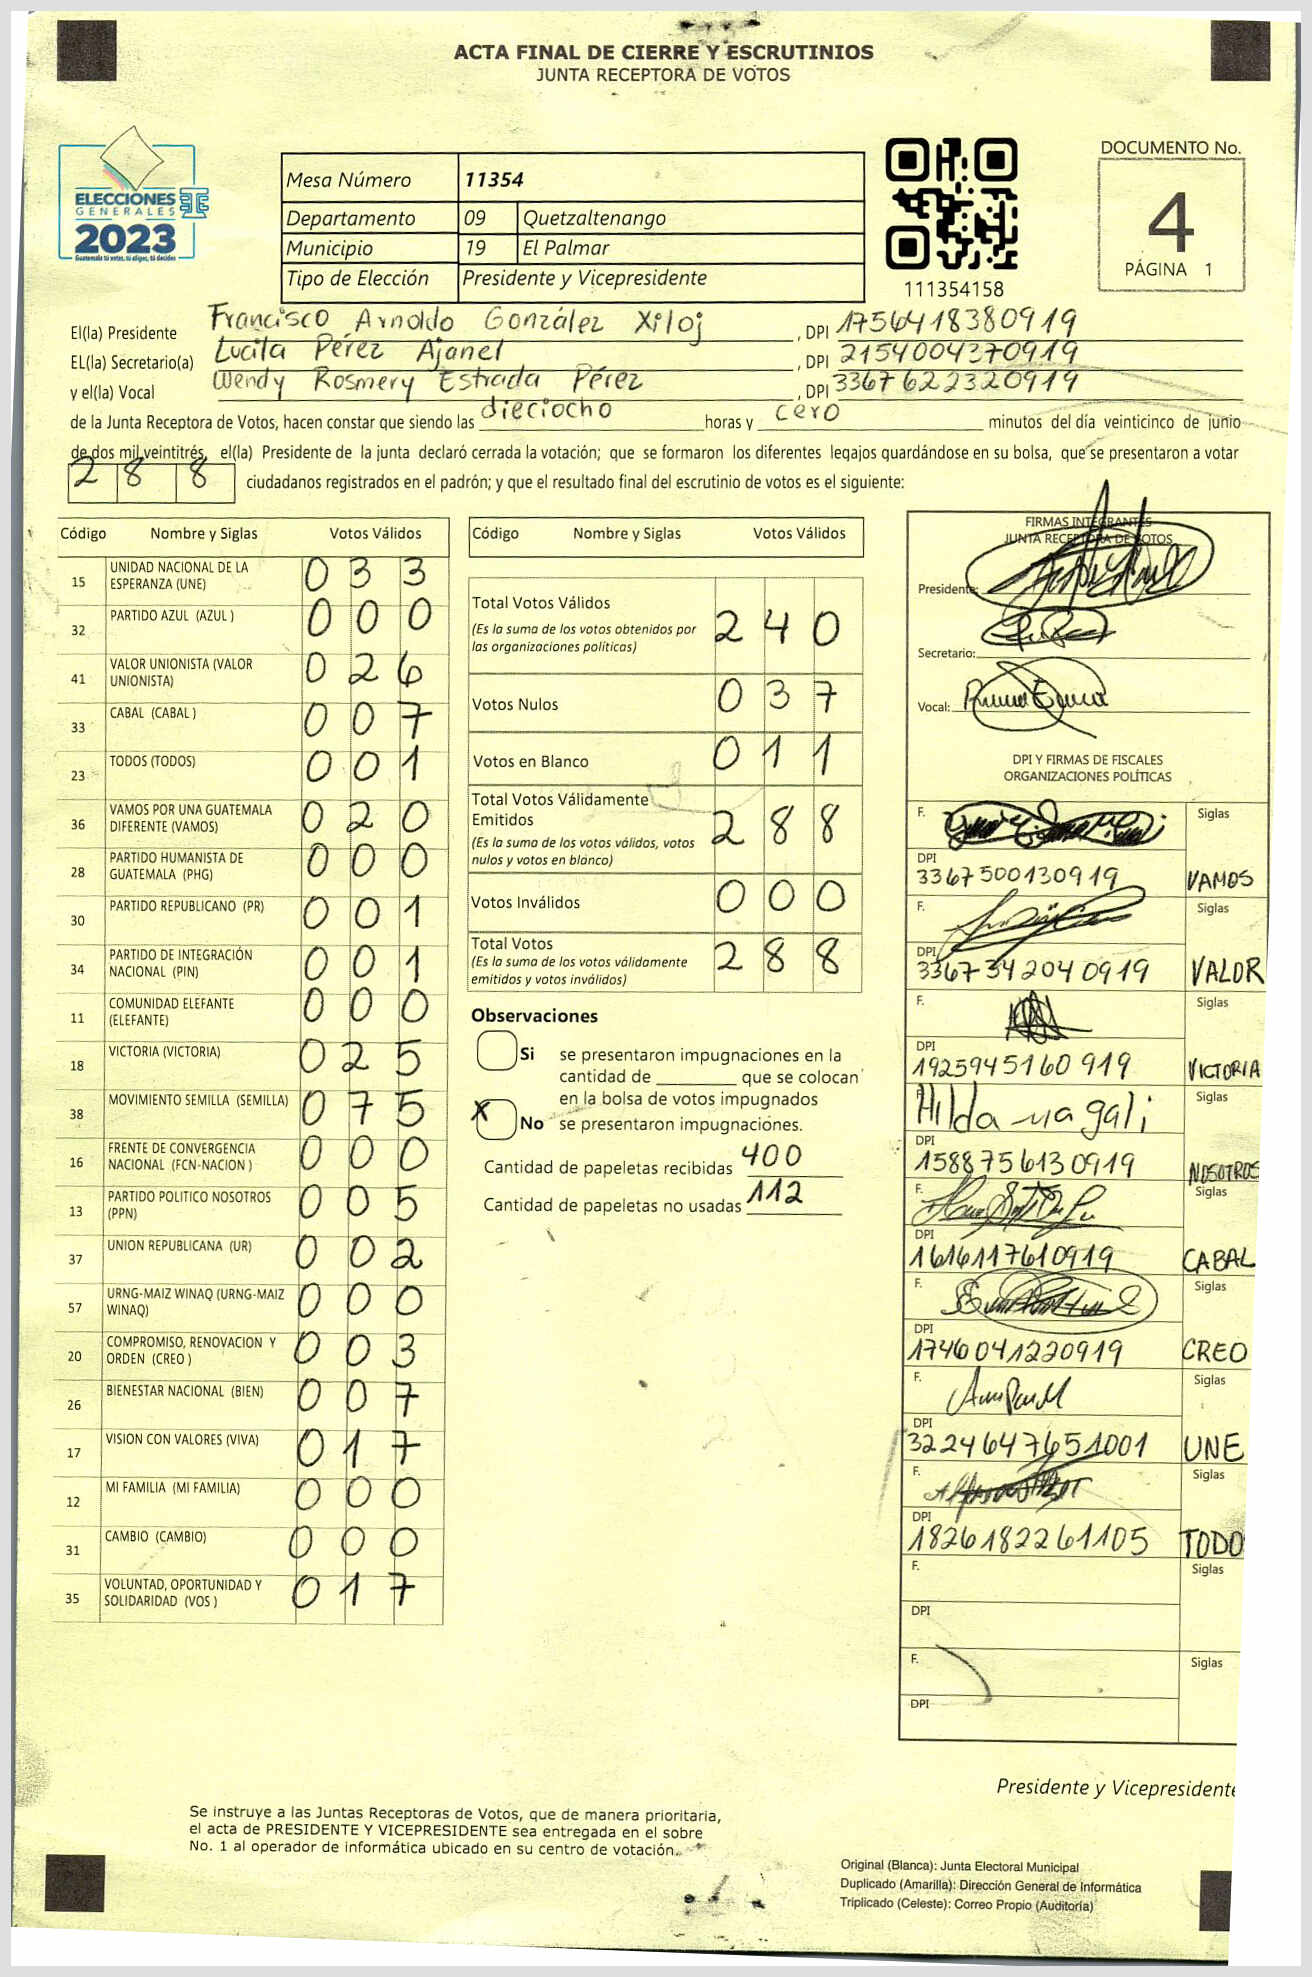 ACTA FINAL DE CIERRE Y ESCRUTINIOS
JUNTA RECEPTORA DE VOTOS
ELECCIONES
GENERALES
2023
Guatemala tú votas, tú eliges, tú decides
Mesa Número 11354
Departamento 09 Quetzaltenango
Municipio 19 El Palmar
Tipo de Elección Presidente y Vicepresidente
111354158
DOCUMENTO No.
4
PÁGINA 1
El(la) Presidente Francisco Arnoldo González Xiloj, DPI 1756418380919
EL(la) Secretario(a) Lucita Pérez Ajanel, DPI 2154004370919
y el(la) Vocal Wendy Rosmery Estrada Pérez, DPI 3367622320919
de la Junta Receptora de Votos, hacen constar que siendo las dieciocho horas y cero minutos del día veinticinco de junio
de dos mil veintitrés, el(la) Presidente de la junta declaró cerrada la votación; que se formaron los diferentes legajos guardándose en su bolsa, que se presentaron a votar
288 ciudadanos registrados en el padrón; y que el resultado final del escrutinio de votos es el siguiente:
Código Nombre y Siglas Votos Válidos
15 UNIDAD NACIONAL DE LA ESPERANZA (UNE) 033
32 PARTIDO AZUL (AZUL ) 000
41 VALOR UNIONISTA (VALOR UNIONISTA) 026
33 CABAL (CABAL ) 007
23 TODOS (TODOS) 001
36 VAMOS POR UNA GUATEMALA DIFERENTE (VAMOS) 020
28 PARTIDO HUMANISTA DE GUATEMALA (PHG) 000
30 PARTIDO REPUBLICANO (PR) 001
34 PARTIDO DE INTEGRACIÓN NACIONAL (PIN) 001
11 COMUNIDAD ELEFANTE (ELEFANTE) 000
18 VICTORIA (VICTORIA) 025
38 MOVIMIENTO SEMILLA (SEMILLA) 075
16 FRENTE DE CONVERGENCIA NACIONAL (FCN-NACION ) 000
13 PARTIDO POLITICO NOSOTROS (PPN) 005
37 UNION REPUBLICANA (UR) 002
57 URNG-MAIZ WINAQ (URNG-MAIZ WINAQ) 000
20 COMPROMISO, RENOVACION Y ORDEN (CREO ) 003
26 BIENESTAR NACIONAL (BIEN) 007
17 VISION CON VALORES (VIVA) 017
12 MI FAMILIA (MI FAMILIA) 000
31 CAMBIO (CAMBIO) 000
35 VOLUNTAD, OPORTUNIDAD Y SOLIDARIDAD (VOS ) 017
Código Nombre y Siglas Votos Válidos
Total Votos Válidos 240
(Es la suma de los votos obtenidos por
las organizaciones políticas)
Votos Nulos 037
Votos en Blanco 011
Total Votos Válidamente
Emitidos 288
(Es la suma de los votos válidos, votos
nulos y votos en blanco)
Votos Inválidos 000
Total Votos 288
(Es la suma de los votos válidamente
emitidos y votos inválidos)
Observaciones
Si se presentaron impugnaciones en la
cantidad de ________ que se colocan
en la bolsa de votos impugnados
X No se presentaron impugnaciones.
Cantidad de papeletas recibidas 400
Cantidad de papeletas no usadas 112
FIRMAS INTEGRANTES
JUNTA RECEPTORA DE VOTOS
Presidente:
Secretario:
Vocal:
DPI Y FIRMAS DE FISCALES
ORGANIZACIONES POLÍTICAS
F. Siglas
DPI
3367500130919 VAMOS
F. Siglas
DPI
3367342040919 VALOR
F. Siglas
DPI
1925945160919 VICTORIA
F. Hilda magali Siglas
DPI
1588756130919 NOSOTROS
F. Siglas
DPI
1616117610919 CABAL
F. Siglas
DPI
1746041220919 CREO
F. Siglas
DPI
3224647651001 UNE
F. Siglas
DPI
1826182261105 TODO
F. Siglas
DPI
F. Siglas
DPI
Presidente y Vicepresidente
Se instruye a las Juntas Receptoras de Votos, que de manera prioritaria,
el acta de PRESIDENTE Y VICEPRESIDENTE sea entregada en el sobre
No. 1 al operador de informática ubicado en su centro de votación.
Original (Blanca): Junta Electoral Municipal
Duplicado (Amarilla): Dirección General de Informática
Triplicado (Celeste): Correo Propio (Auditoría)